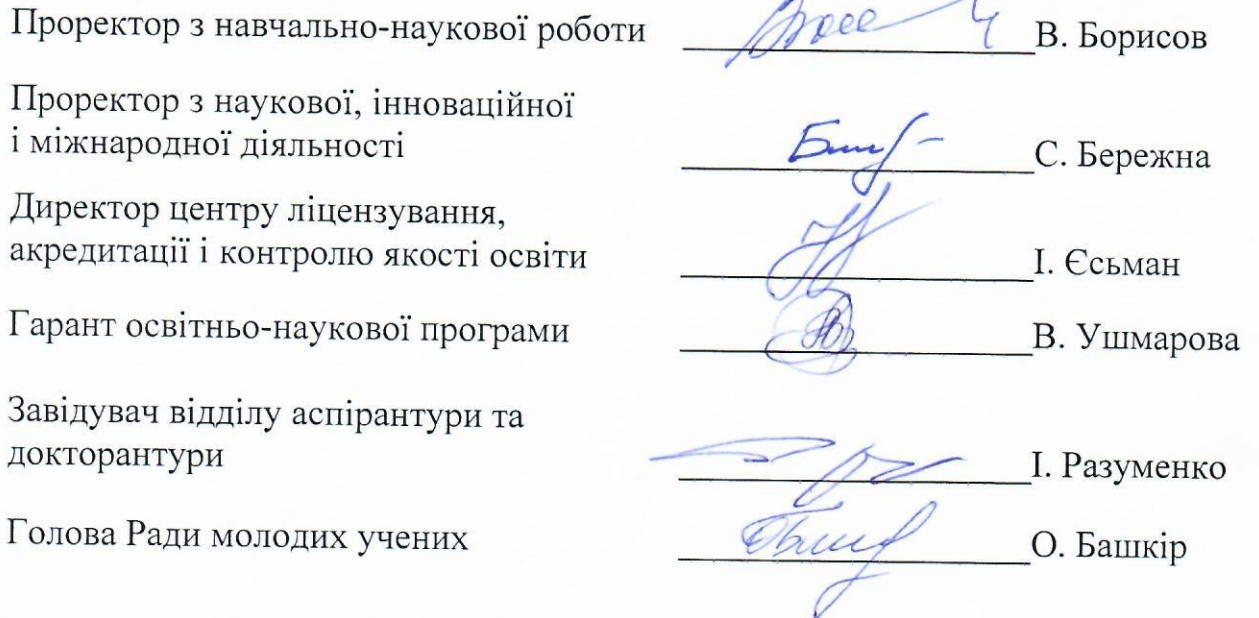 Проректор з навчально-наукової роботи В. Борисов
Проректор з наукової, інноваційної
і міжнародної діяльності С. Бережна
Директор центру ліцензування,
акредитації і контролю якості освіти І. Єсьман
Гарант освітньо-наукової програми В. Ушмарова
Завідувач відділу аспірантури та
докторантури І. Разуменко
Голова Ради молодих учених О. Башкір